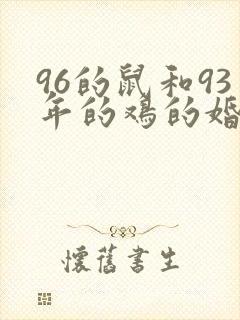 96的鼠和93
年的鸡的婚
懷舊書生